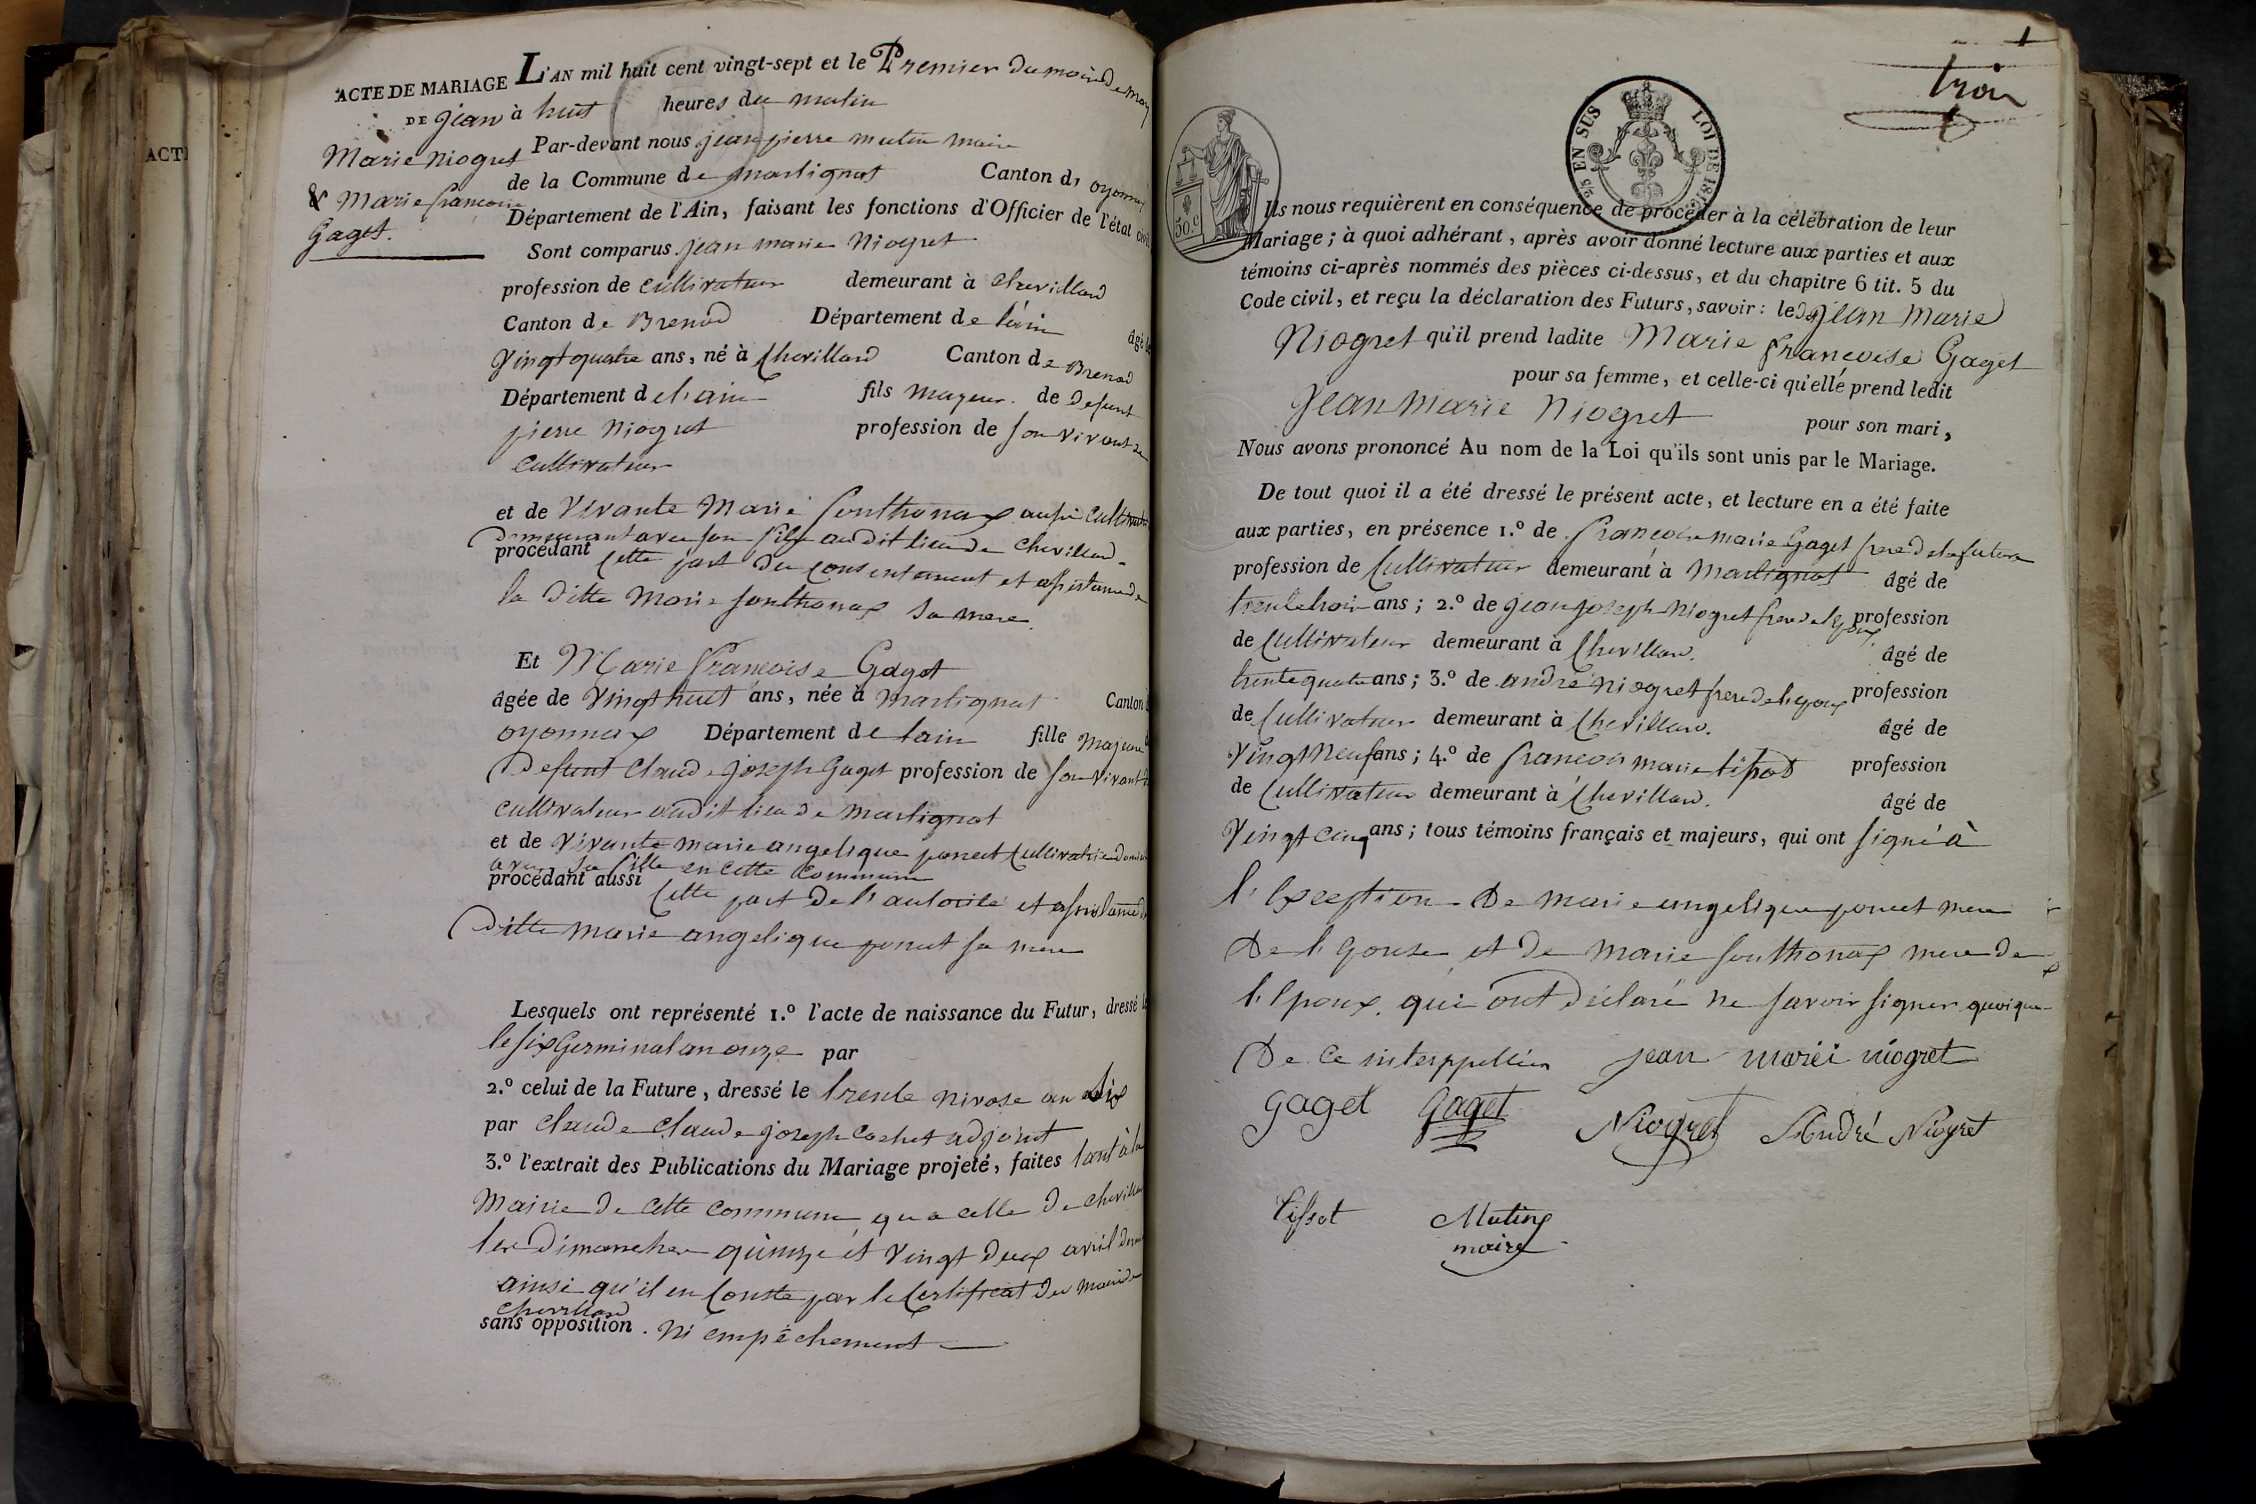 ACTE DE MARIAGE
DE jean
Marie Niogret
& Marie francoise
Gaget.
L'AN mil huit cent vingt-sept et le Premier du mois de may
à huit heures du matin
Par-devant nous jean pierre mutin maire
de la Commune de martignat Canton d'oyonnax
Département de l'Ain, faisant les fonctions d'Officier de l'état civil
Sont comparus jean marie Niogret
profession de cultivateur demeurant à chevillard
Canton de Brenod Département de l'ain âgé de
Vingt quatre ans, né à Chevillard Canton de Brenod
Département de l'ain fils majeur de Defunt
pierre Niogret profession de son vivant
cultivateur
et de Vivante Marie Sonthonax aussi cultivatrice
Demeurant avec son fils audit lieu de Chevillard
procédant Cette part du consentement et assistance de
la ditte Marie Sonthonax sa mere.
Et Marie francoise Gaget
âgée de Vingt huit ans, née à martignat Canton
oyonnax Département de lain fille majeure
Defunt Claude joseph Gaget profession de son vivant
cultivateur audit lieu de martignat
et de Vivante marie angelique poncet Cultivatrice
avec sa fille en cette commune
procédant aussi Cette part de l'autorité et assistance de
Ditte marie angelique poncet sa mere
Lesquels ont représenté 1.º l'acte de naissance du Futur, dressé le
le six Germinal an onze par
2.º celui de la Future, dressé le trente nivose an dix
par claude claude joseph cochet adjoint
3.º l'extrait des Publications du Mariage projeté, faites tant à la
Mairie de cette commune qu'a celle de chevillard
les Dimanches quinze et vingt deux avril dernier
ainsi qu'il en conste par le Certificat du maire de
chevillard
sans opposition. Ni empêchement
trois
2/5 EN SUS LOI DE
50.c
Ils nous requièrent en conséquence de procéder à la célébration de leur
Mariage; à quoi adhérant, après avoir donné lecture aux parties et aux
témoins ci-après nommés des pièces ci-dessus, et du chapitre 6 tit. 5 du
Code civil, et reçu la déclaration des Futurs, savoir: ledit jean Marie
Niogret qu'il prend ladite Marie francoise Gaget
pour sa femme, et celle-ci qu'elle prend ledit
Jean Marie Niogret pour son mari,
Nous avons prononcé Au nom de la Loi qu'ils sont unis par le Mariage.
De tout quoi il a été dressé le présent acte, et lecture en a été faite
aux parties, en présence 1.º de francois marie Gaget frere de la future
profession de Cultivateur demeurant à Martignat âgé de
trente trois ans; 2.º de jean joseph Niogret frere de l'Epoux profession
de Cultivateur demeurant à Chevillard. âgé de
trente quatre ans; 3.º de andré Niogret frere de l'epoux profession
de Cultivateur demeurant à Chevillard. âgé de
Vingt Neuf ans; 4.º de francois marie tissot profession
de Cultivateur demeurant à Chevillard. âgé de
Vingt cinq ans; tous témoins français et majeurs, qui ont signé à
l'Exception De marie angelique poncet mere
De l'Epouse et De marie Sonthonax mere de
l'Epoux qui ont déclaré ne savoir signer quoique
De ce interppellées jean marie niogret
gaget Gaget Niogret André Niogret
Tissot Mutin
maire